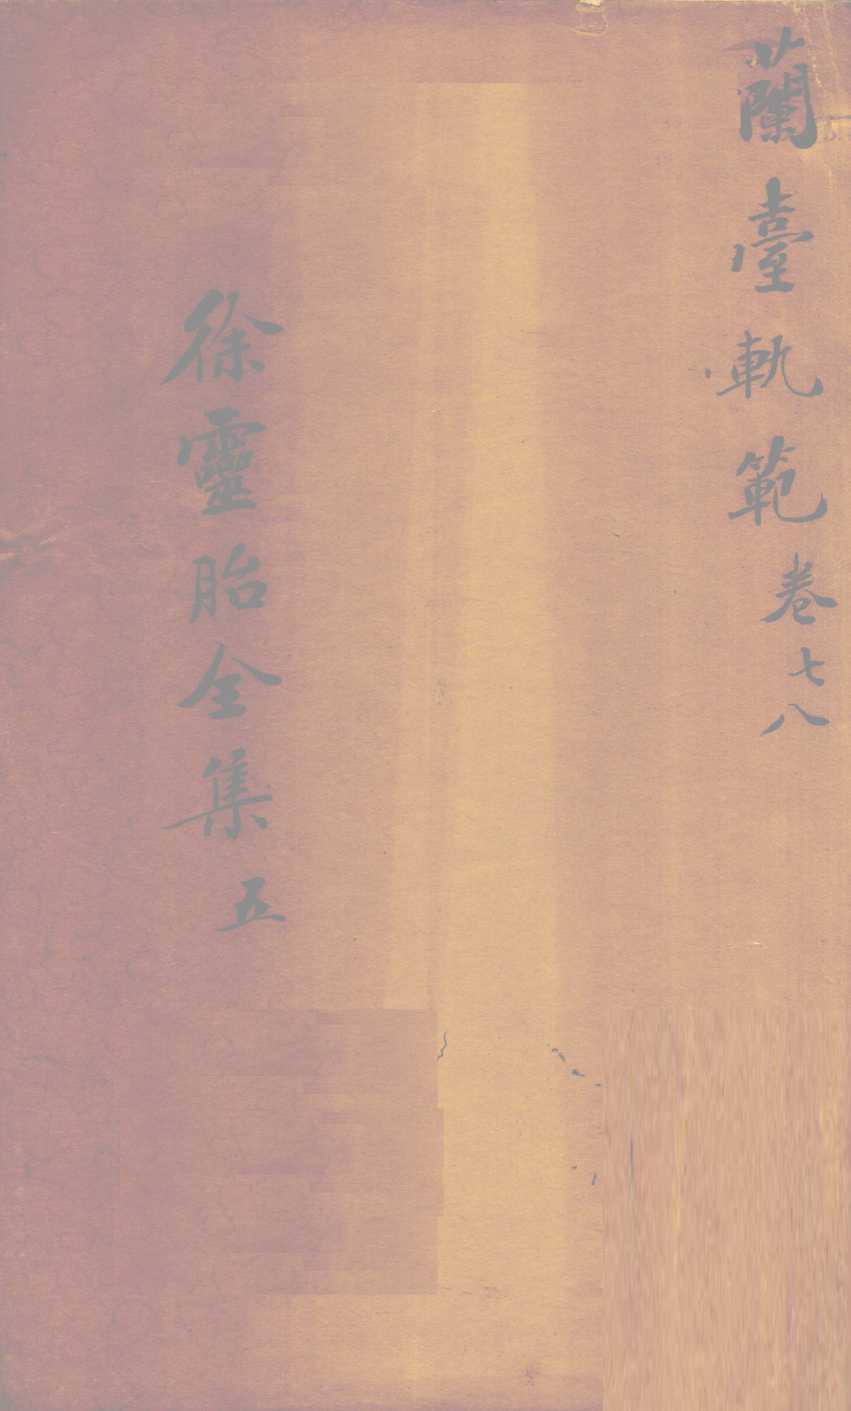 蘭臺軌範卷七八
徐靈胎全集五